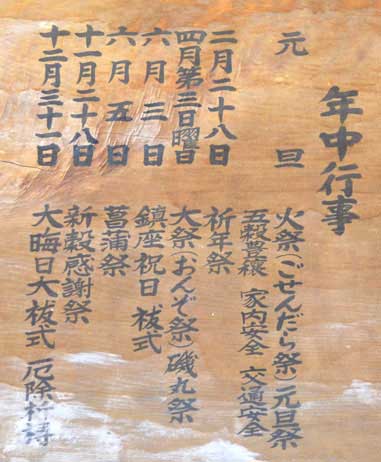 年中行事
元旦 火祭(ごせんだら祭)元旦祭
五穀豊穣 家内安全 交通安全
二月二十八日 祈年祭
四月第三日曜日 大祭(おんぞ祭)磯丸祭
六月三日 鎮座祝日 祓式
六月五日 菖蒲祭
十一月二十八日 新穀感謝祭
十二月三十一日 大晦日大祓式 厄除祈祷